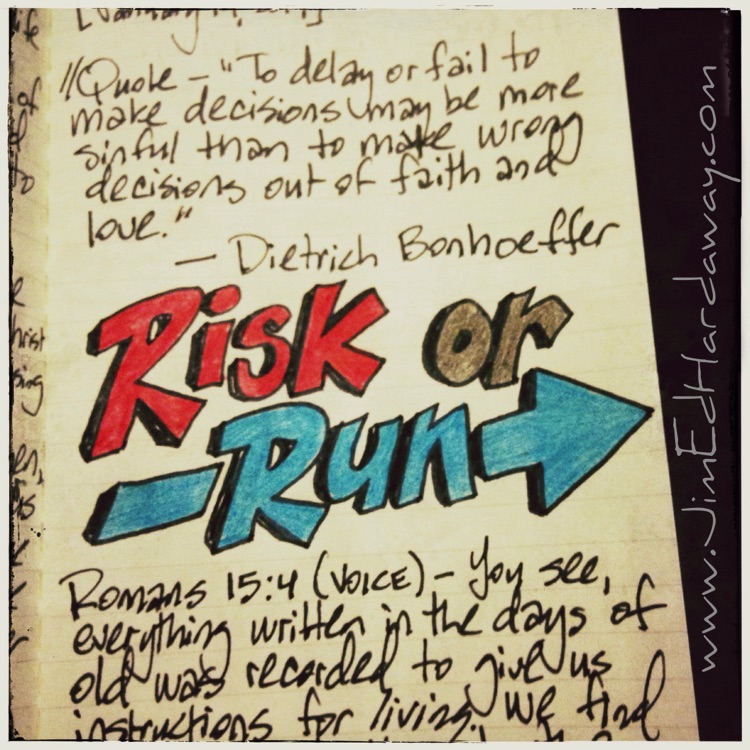 //Quote – "To delay or fail to
make decisions may be more
sinful than to make wrong
decisions out of faith and
love."
— Dietrich Bonhoeffer
Risk or
Run
Romans 15:4 (VOICE) – You see,
everything written in the days of
old was recorded to give us
instructions for living. We find
www.JimEdHardaway.com